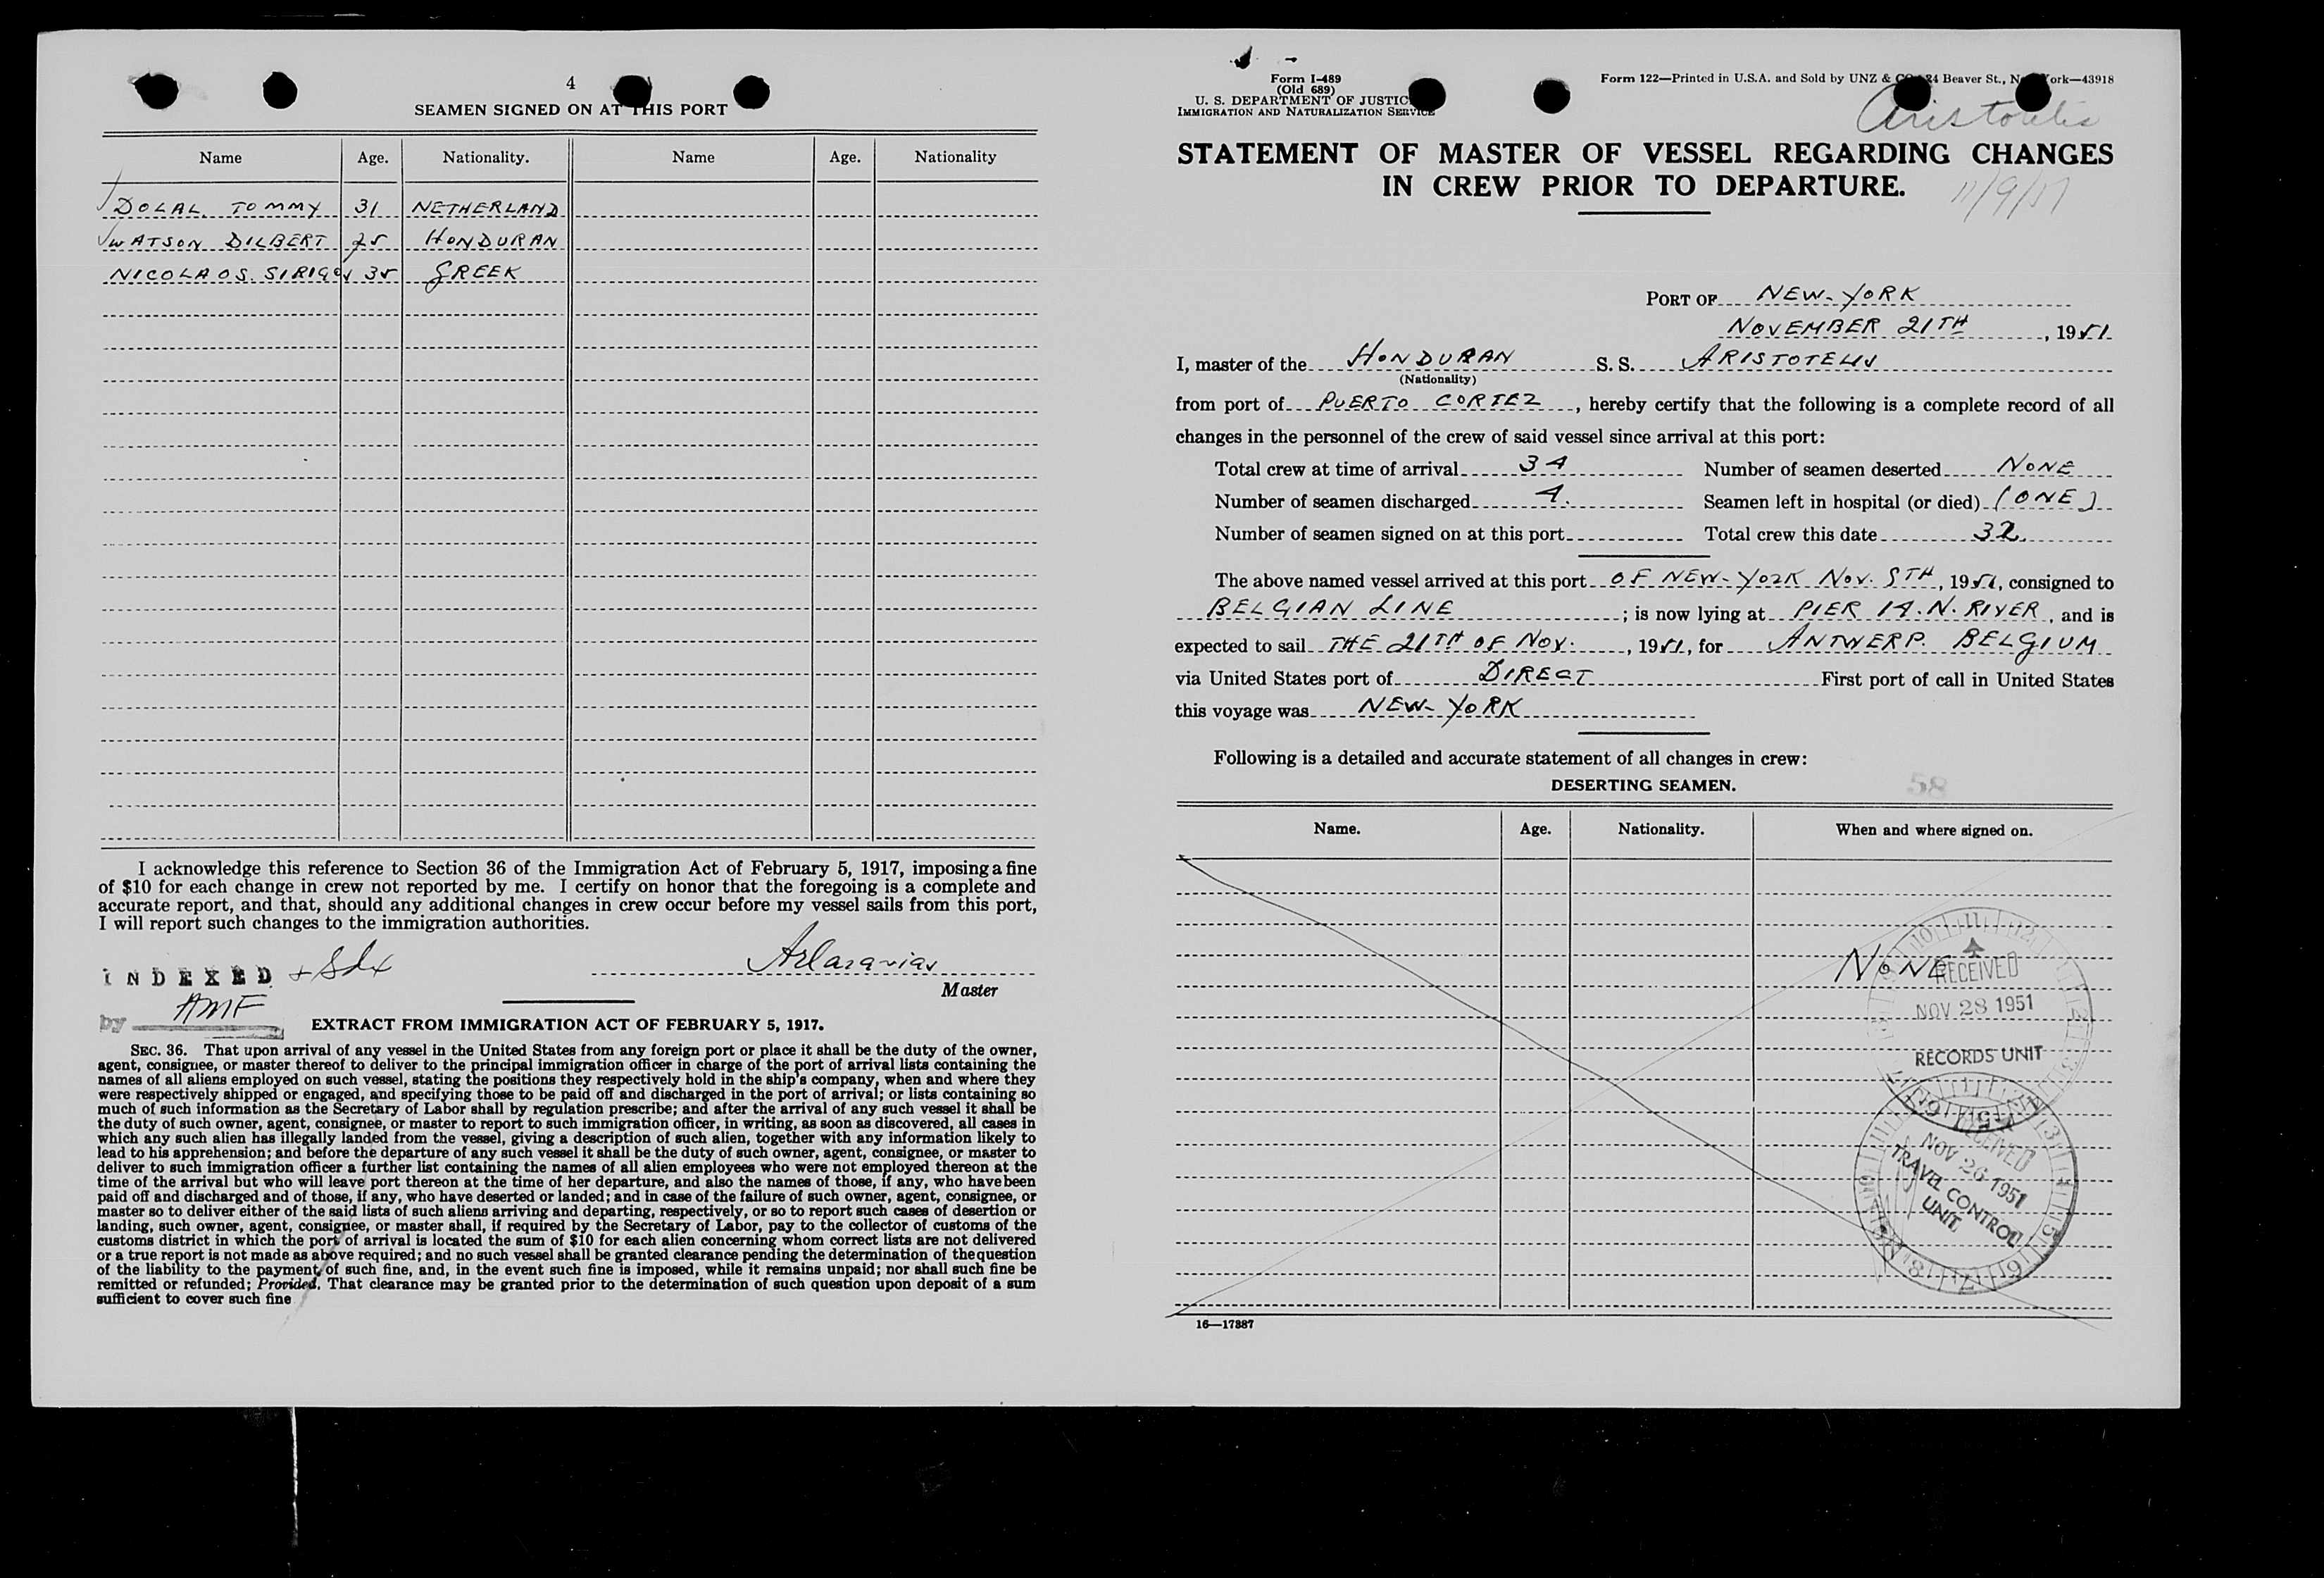 4
SEAMEN SIGNED ON AT THIS PORT
Name Age. Nationality. Name Age. Nationality
DOLAL. TOMMY 31 NETHERLAND
WATSON DILBERT 25 HONDURAN
NICOLAOS. SIRIGOS 35 GREEK
I acknowledge this reference to Section 36 of the Immigration Act of February 5, 1917, imposing a fine
of $10 for each change in crew not reported by me. I certify on honor that the foregoing is a complete and
accurate report, and that, should any additional changes in crew occur before my vessel sails from this port,
I will report such changes to the immigration authorities.
INDEXED
Master
by AMF
EXTRACT FROM IMMIGRATION ACT OF FEBRUARY 5, 1917.
SEC. 36. That upon arrival of any vessel in the United States from any foreign port or place it shall be the duty of the owner,
agent, consignee, or master thereof to deliver to the principal immigration officer in charge of the port of arrival lists containing the
names of all aliens employed on such vessel, stating the positions they respectively hold in the ship's company, when and where they
were respectively shipped or engaged, and specifying those to be paid off and discharged in the port of arrival; or lists containing so
much of such information as the Secretary of Labor shall by regulation prescribe; and after the arrival of any such vessel it shall be
the duty of such owner, agent, consignee, or master to report to such immigration officer, in writing, as soon as discovered, all cases in
which any such alien has illegally landed from the vessel, giving a description of such alien, together with any information likely to
lead to his apprehension; and before the departure of any such vessel it shall be the duty of such owner, agent, consignee, or master to
deliver to such immigration officer a further list containing the names of all alien employees who were not employed thereon at the
time of the arrival but who will leave port thereon at the time of her departure, and also the names of those, if any, who have been
paid off and discharged and of those, if any, who have deserted or landed; and in case of the failure of such owner, agent, consignee, or
master so to deliver either of the said lists of such aliens arriving and departing, respectively, or so to report such cases of desertion or
landing, such owner, agent, consignee, or master shall, if required by the Secretary of Labor, pay to the collector of customs of the
customs district in which the port of arrival is located the sum of $10 for each alien concerning whom correct lists are not delivered
or a true report is not made as above required; and no such vessel shall be granted clearance pending the determination of the question
of the liability to the payment of such fine, and, in the event such fine is imposed, while it remains unpaid; nor shall such fine be
remitted or refunded; Provided, That clearance may be granted prior to the determination of such question upon deposit of a sum
sufficient to cover such fine
Form I-489
(Old 689)
U. S. DEPARTMENT OF JUSTICE
IMMIGRATION AND NATURALIZATION SERVICE
Form 122—Printed in U.S.A. and Sold by UNZ & CO., 24 Beaver St., New York—43918
Aristotelis
STATEMENT OF MASTER OF VESSEL REGARDING CHANGES
IN CREW PRIOR TO DEPARTURE.
11/9/51
PORT OF NEW-YORK
NOVEMBER 21TH, 1951
I, master of the HONDURAN S. S. ARISTOTELIS
(Nationality)
from port of PUERTO CORTEZ, hereby certify that the following is a complete record of all
changes in the personnel of the crew of said vessel since arrival at this port:
Total crew at time of arrival 34 Number of seamen deserted NONE
Number of seamen discharged 4. Seamen left in hospital (or died) (ONE)
Number of seamen signed on at this port Total crew this date 32.
The above named vessel arrived at this port OF NEW-YORK NOV. 9TH, 1951, consigned to
BELGIAN LINE; is now lying at PIER 14. N. RIVER, and is
expected to sail THE 21TH OF NOV., 1951, for ANTWERP. BELGIUM
via United States port of DIRECT First port of call in United States
this voyage was NEW-YORK
Following is a detailed and accurate statement of all changes in crew:
DESERTING SEAMEN. 58
Name. Age. Nationality. When and where signed on.
NONE
RECEIVED
NOV 28 1951
RECORDS UNIT
RECEIVED
NOV 26 1951
TRAVEL CONTROL
UNIT
16—17887